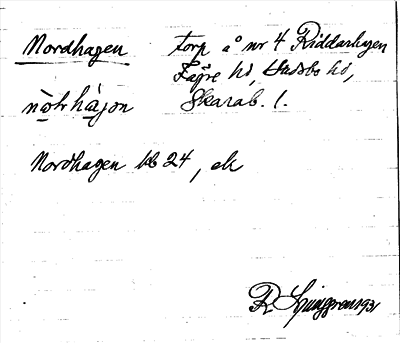 Nordhagen torp å nr 4 Riddarhagen
Fägre hd, Vadsbo hd,
nòrhàjən Skarab. l.
Nordhagen kb 24, ek
R Ljunggren 1931